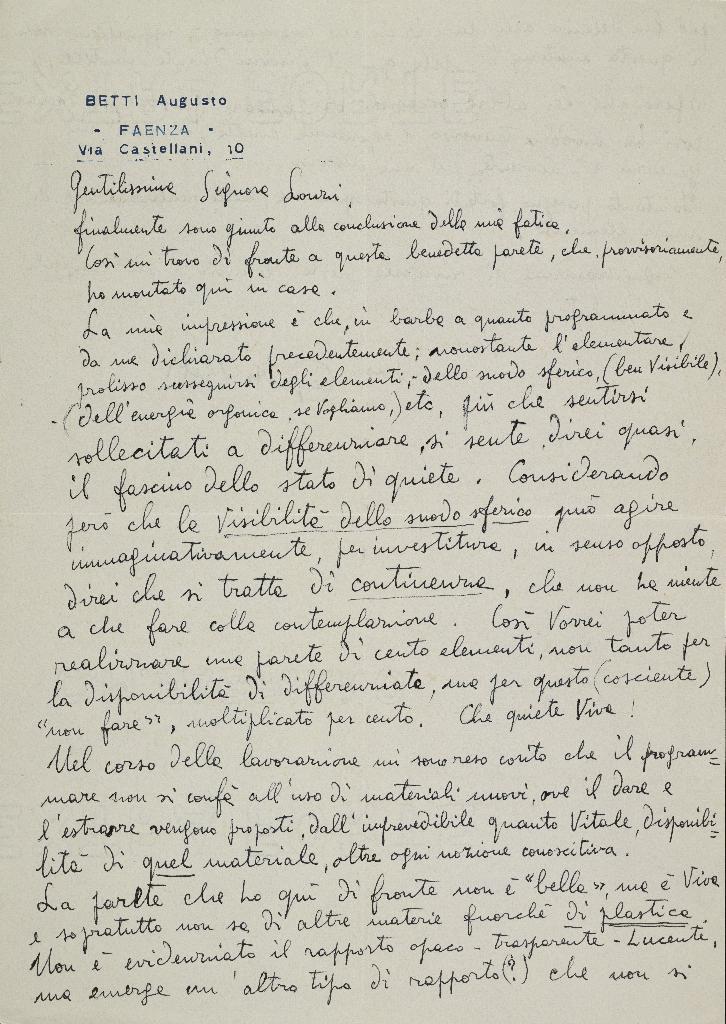 BETTI Augusto
- FAENZA -
Via Castellani, 10
Gentilissima Signora Lonzi,
finalmente sono giunto alla conclusione della mia fatica.
Così mi trovo di fronte a questa benedetta parete, che, provvisoriamente,
ho montato quì in casa.
La mia impressione è che, in barba a quanto programmato e
da me dichiarato precedentemente; nonostante l'elementare,
prolisso susseguirsi degli elementi, - dello snodo sferico, (ben Visibile),
(dell'energia orgonica, se Vogliamo,) etc, più che sentirsi
sollecitati a differenziare, si sente, direi quasi,
il fascino dello stato di quiete. Considerando
però che la Visibilità dello snodo sferico può agire
immaginativamente, per investitura, in senso opposto,
direi che si tratta di continenza, che non ha niente
a che fare colla contemplazione. Così Vorrei poter
realizzare una parete di cento elementi, non tanto per
la disponibilità di differenziata, ma per questo (cosciente)
"non fare", moltiplicato per cento. Che quiete Viva!
Nel corso della lavorazione mi sono reso conto che il program=
mare non si confà all'uso di materiali nuovi, ove il dare e
l'estrarre vengono proposti, dall'imprevedibile quanto Vitale, disponibi=
lità di quel materiale, oltre ogni nozione conoscitiva.
La parete che ho quì di fronte non è "bella", ma è Viva
e sopratutto non sa di altre materie fuorchè di plastica.
Non è evidenziato il rapporto opaco - trasparente - Lucente,
ma emerge un'altro tipo di rapporto (?) che non si